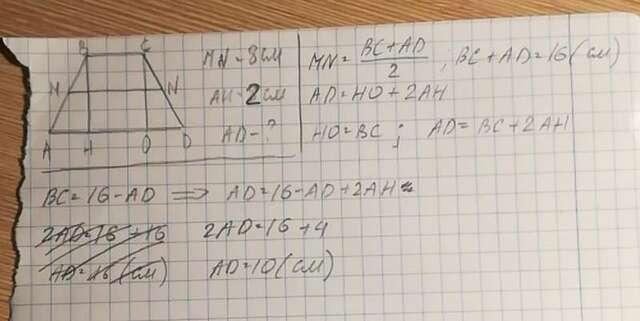 B C
M N
A H O D
MN=8см
AH=2см
AD-?
MN=BC+AD/2; BC+AD=16(см)
AD=HO+2AH
HO=BC; AD=BC+2AH
BC=16-AD ⟹ AD=16-AD+2AH
2AD=16+16
AD=16(см)
2AD=16+4
AD=10(см)